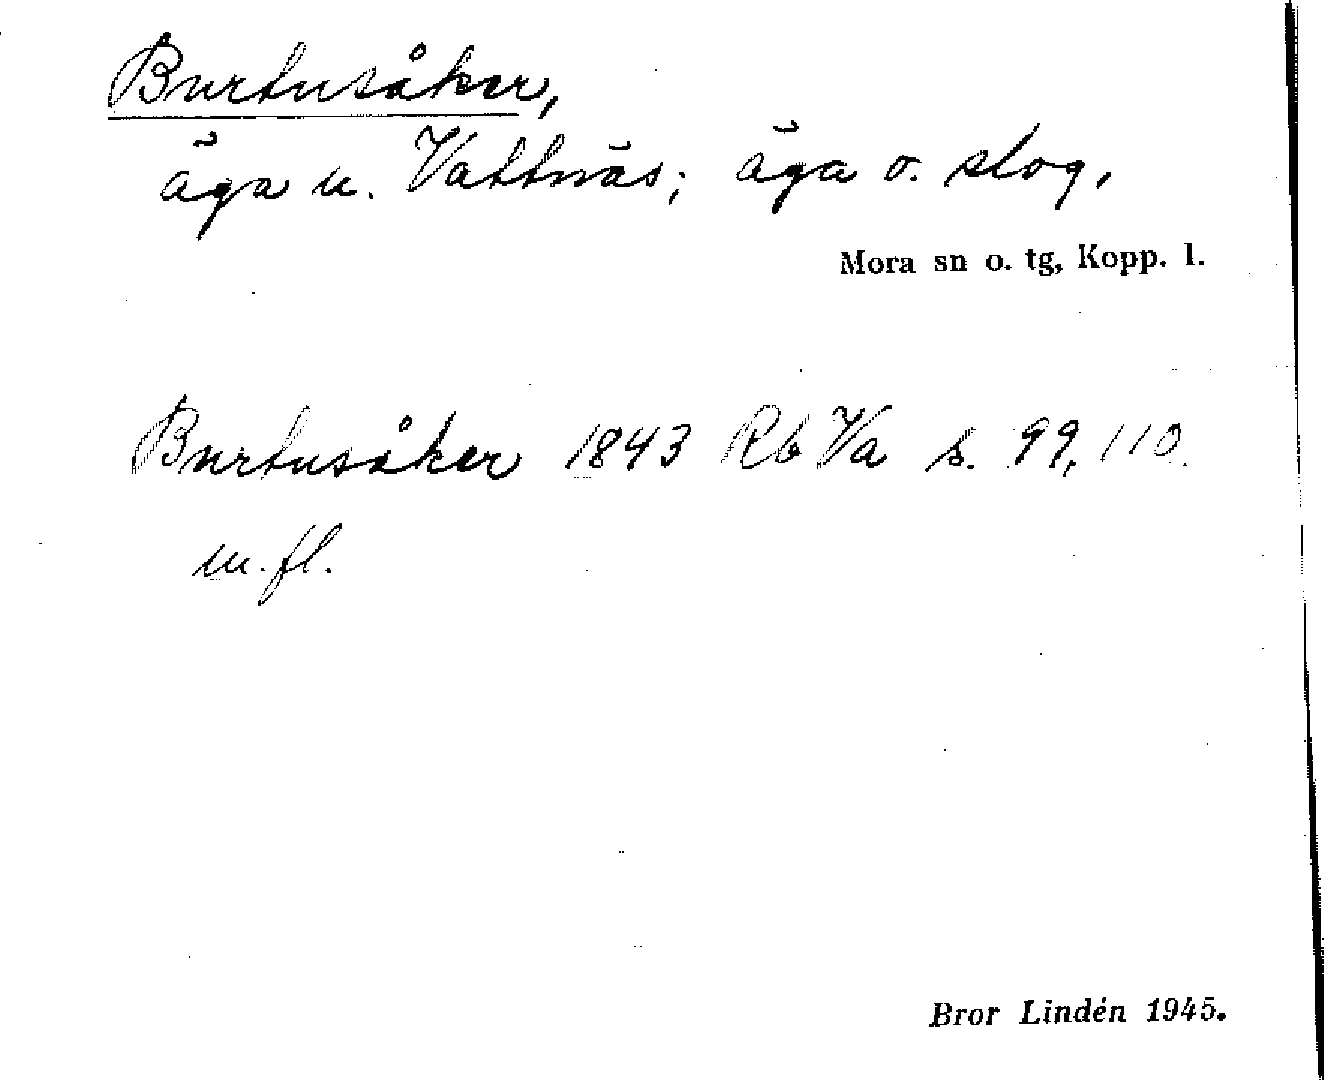 Burtusåker,
äga u. Vattnäs; äga o. slog,
Mora sn o. tg, Kopp. l.
Burtusåker 1843 Rb Va s. 99, 110
m.fl.
Bror Lindén 1945.